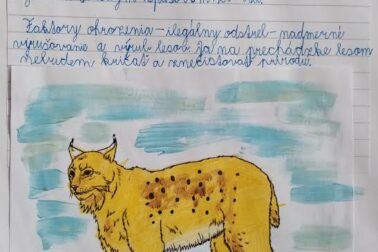 Faktory ohrozenia – ilegálny odstrel – nadmerné
vyrušovanie a výrub lesov. Ja na prechádzke lesom
nebudem kričať a znečisťovať prírodu.